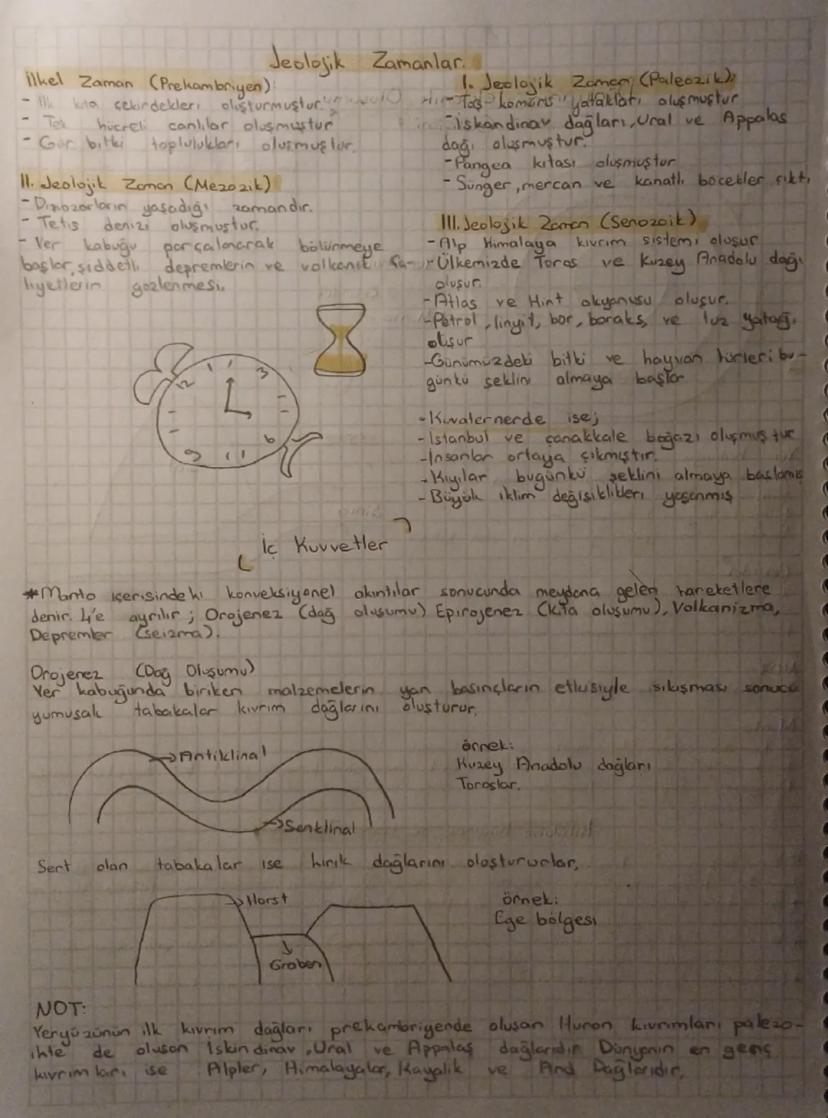 Jeolojik Zamanlar.
İlkel Zaman (Prekambriyen)
- İlk kıta çekirdekleri oluşturmuştur
- Tek hücreli canlılar oluşmuştur
- Gür bitki toplulukları oluşmuştur.
II. Jeolojik Zaman (Mezozik)
- Dinozorların yaşadığı zamandır.
- Tetis denizi oluşmuştur.
- Yer kabuğu parçalanarak bölünmeye
başlar, şiddetli depremlerin ve volkanik fa-
liyetlerin gözlenmesi.
I. Jeolojik Zaman (Paleozik)
- Taş kömürü yatakları oluşmuştur
- İskandinav dağları, Ural ve Appalaş
dağı oluşmuştur.
- Pangea kıtası oluşmuştur
- Sünger, mercan ve kanatlı böcekler çıktı
III. Jeolojik Zaman (Senozoik)
- Alp Himalaya kıvrım sistemi oluşur
- Ülkemizde Toros ve Kuzey Anadolu dağı
oluşur
- Atlas ve Hint okyanusu oluşur.
- Petrol, linyit, bor, boraks, ve tuz yatağı
oluşur
- Günümüzdeki bitki ve hayvan türleri bu-
günkü şeklini almaya başlar
- Kuvaternerde ise;
- İstanbul ve çanakkale boğazı oluşmuştur
- İnsanlar ortaya çıkmıştır.
- Kıyılar bugünkü şeklini almaya başlamış
- Büyük iklim değişiklikleri yaşanmış
12 1 3
9 11 6
İç Kuvvetler
* Manto içerisindeki konveksiyonel akıntılar sonucunda meydana gelen hareketlere
denir. 4'e ayrılır; Orojenez (dağ oluşumu) Epirojenez (kıta oluşumu), Volkanizma,
Depremler (seizma).
Orojenez (Dağ Oluşumu)
Yer kabuğunda biriken malzemelerin yan basınçların etkisiyle sıkışması sonucu
yumuşak tabakalar kıvrım dağlarını oluşturur.
Antiklinal
Senklinal
örnek:
Kuzey Anadolu dağları
Toroslar.
Sert olan tabakalar ise kırık dağlarını oluştururlar.
Horst
Graben
örnek:
Ege bölgesi
NOT:
Yeryüzünün ilk kıvrım dağları prekambriyende oluşan Huron kıvrımları palezo-
ikte de oluşan İskindinav, Ural ve Appalaş dağlarıdır. Dünyanın en genç
kıvrımları ise Alpler, Himalayalar, Kayalık ve And Dağlarıdır.